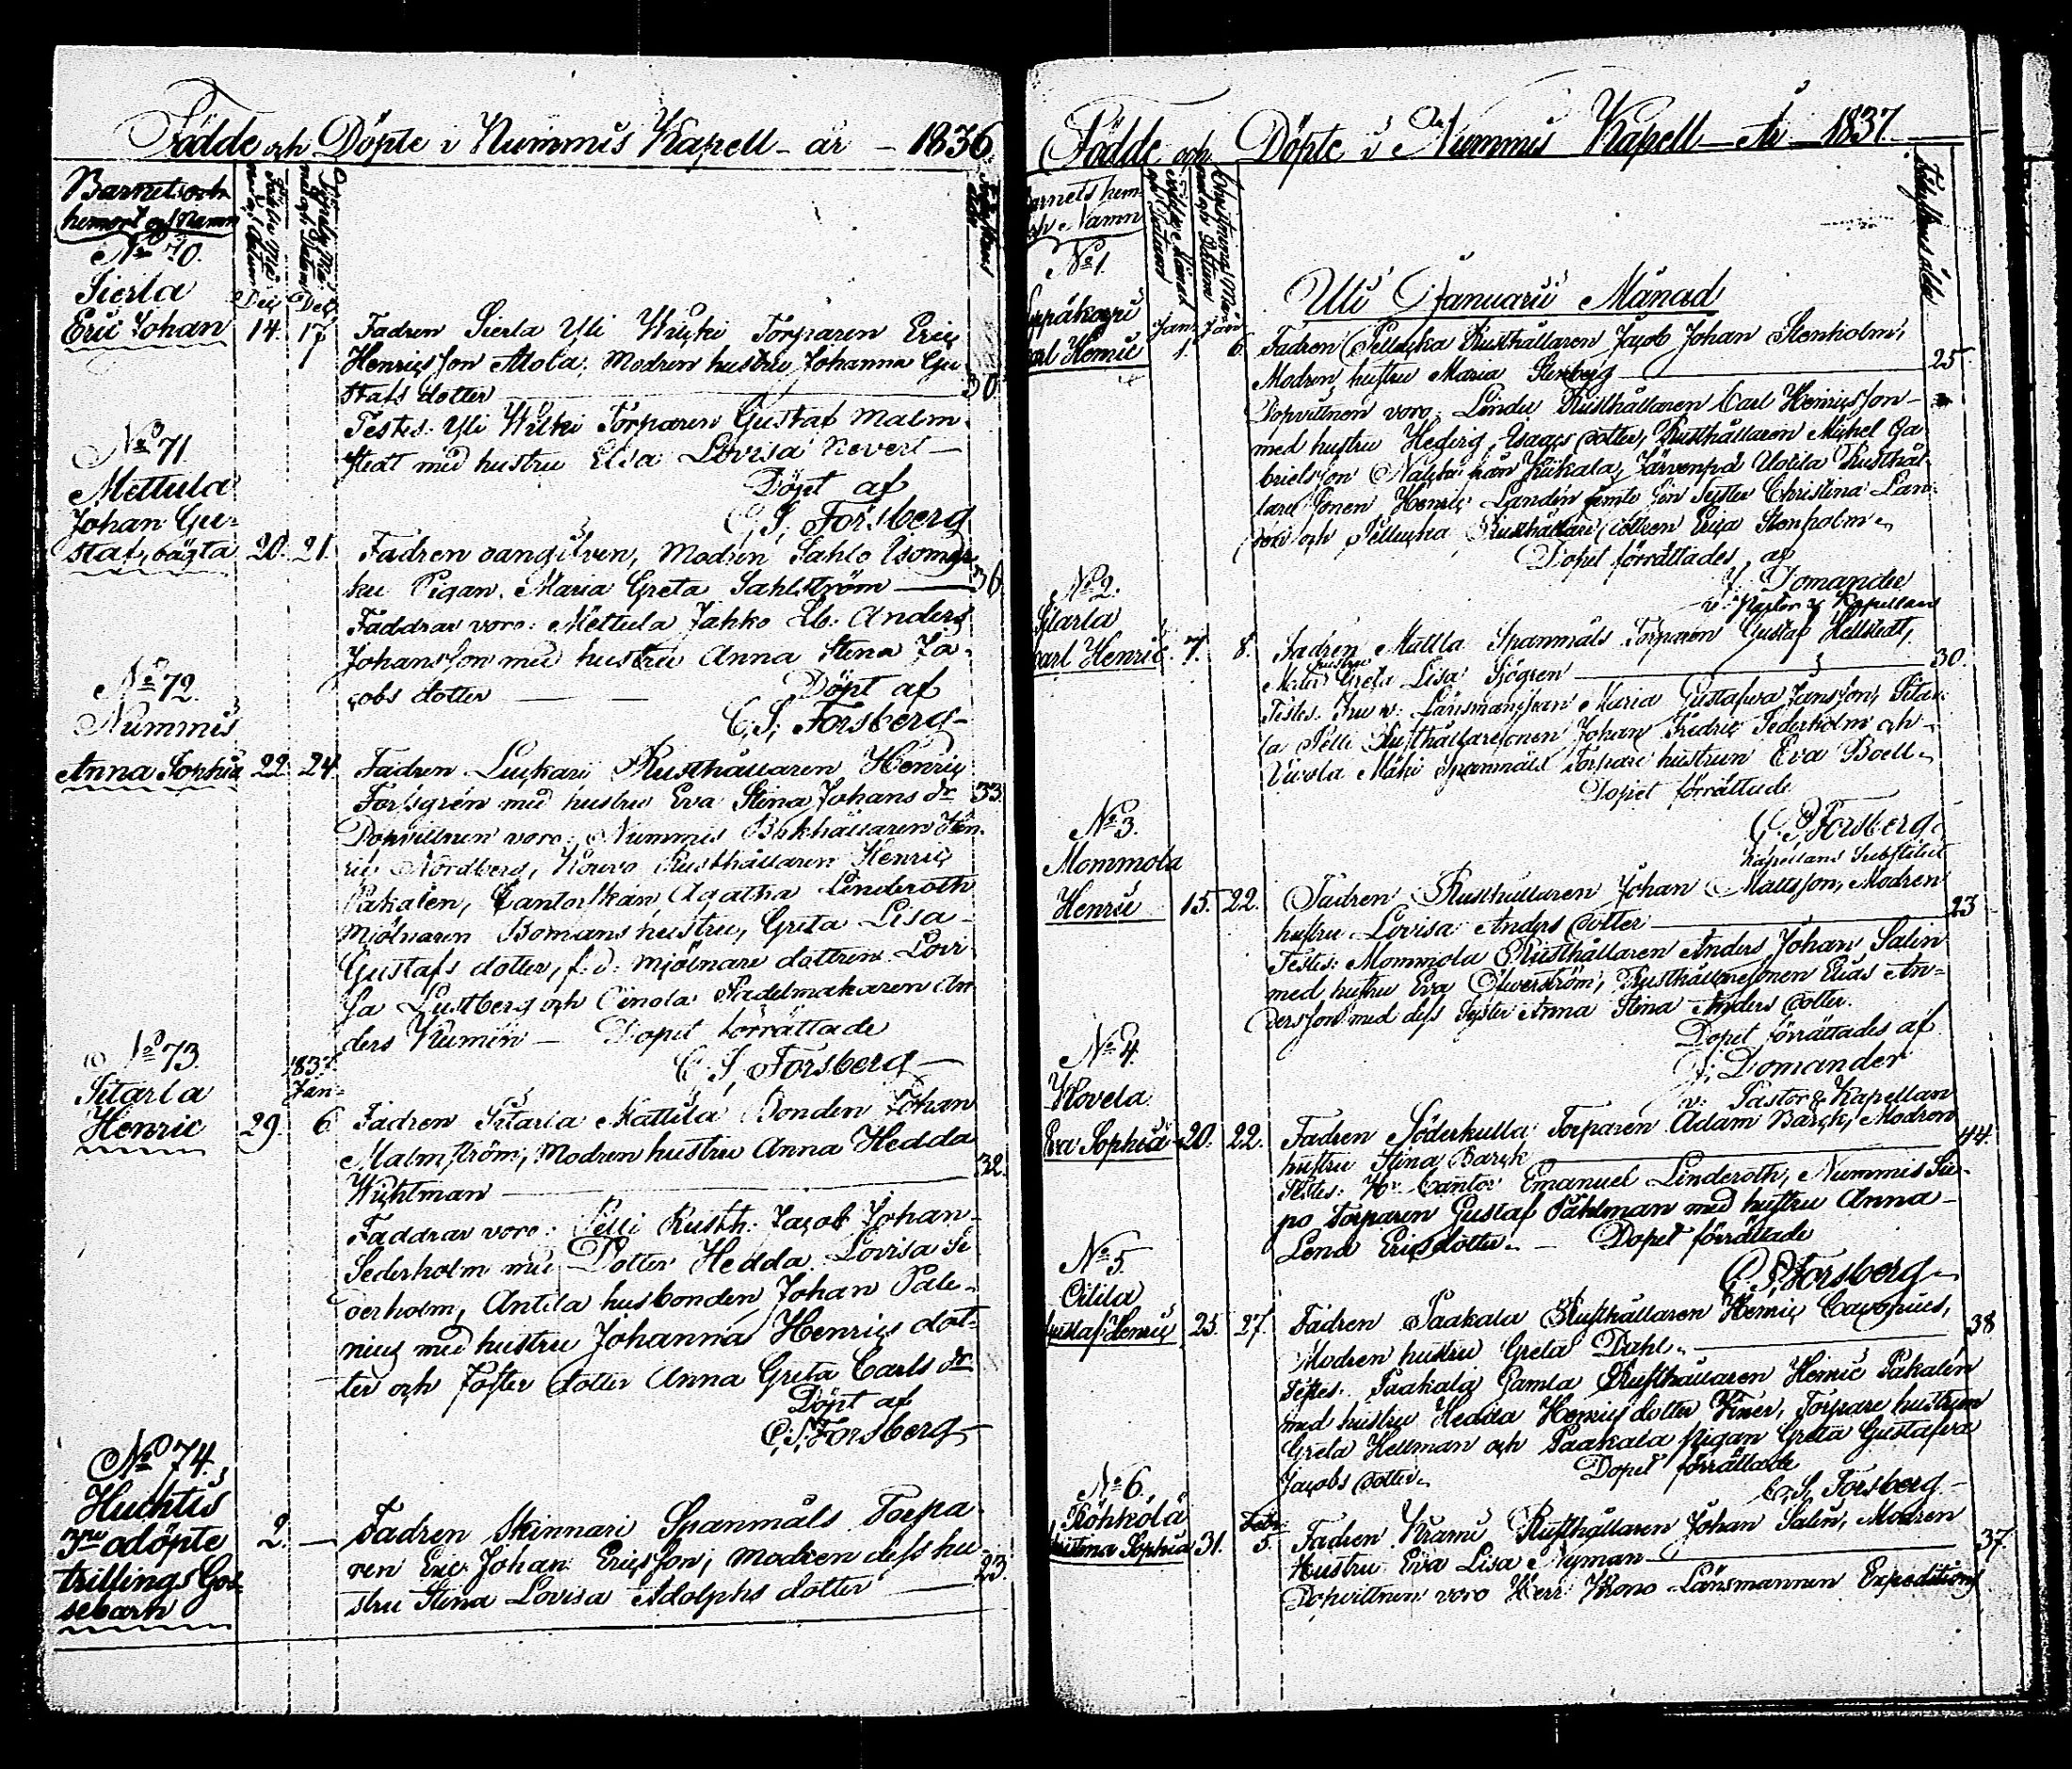 Födde och Döpte i Nummis Kapell - år - 1836
Barnets och
hemort och Namn
No 70.
Sierla
Dec Dec
Eric Johan 14. 17 Fadren Sierla Yli Torparen Eric
Henricsson Modren hustru Johanna Gu
stafs dotter 30.
Testes. Yli Torparen Gustaf Malm
stedt med hustru Elsa Lovisa Nevert
Döpt af
C. S. Forsberg
No 71
Mettula
Johan Gu=
staf, oägta 20. 21. Fadren oangifven, Modren Sahlo
Pigan Maria Greta Sahlström 36
Faddrar voro: Mettula Jahko Anders
Johansson med hustru Anna Stina Ja-
cobs dotter Döpt af
C. S. Forsberg
No 72.
Nummis
Anna Sophia 22. 24. Fadren Luckari Rusthållaren Henric
Forsgrén med hustru Eva Stina Johans dr 33.
Dopvittnen voro: Nummis Bokhållaren Hen-
ric Nordberg, Kouvo Rusthållaren Henric
Pakalen, Cantorskan Agatha Linderoth
Mjölnaren Bomans hustru, Greta Lisa
Gustafs dotter, f. d. Mjölnare dottren Lovi
sa Lustberg och Oinola Sadelmakaren An
ders Kumén — Dopet förrättade
C. S. Forsberg
No 73.
1837
Sitarla
Jan-
Henric 29. 6 Fadren Sitarla Mattila Bonden Johan
Malmström, Modren hustru Anna Hedda
32.
Faddrar voro: Pelli Rusth: Jacob Johan
Sederholm med Dotter Hedda Lovisa Se
derholm, Antila husbonden Johan Pale-
nius med hustru Johanna Henrics dot-
ter och foster dotter Anna Greta Carls dr
Döpt af
C. S. Forsberg
No 74.
Huchtis
odöpte
trillings Gos-
sebarn
2. — Fadren Skinnari Spanmåls Torpa-
ren Eric Johan Ericsson, Modren dess hu-
stru Stina Lovisa Adolphs dotter 23.
Födde och Döpte i Nummis Kapell År 1837.
Barnets hem
och Namn
No 1.
Uti Januarii Månad
Carl Henric 1. 6. Fadren Rusthållaren Jacob Johan Stenholm,
Modren hustru Maria Stenberg 25.
Dopvittnen voro: Lindu Rusthållaren Carl Henricsson
med hustru Hedvig Isaacs dotter, Rusthållaren Michel Ga
brielsson från Kukala, Järvenpä Uotila Rusthål-
lare sonen Henric Landén jemte sin Syster Christina Lan-
dén och Rusthållare dottren Erica Stenholm.
Dopet förrättades af
J. Domander
v. Pastor & Kapellan
No 2.
Sitarla
Carl Henric 7. 8. Fadren Mattila Spanmåls Torparen Gustaf Hellstedt,
hustru Greta Lisa Sjögren 30.
Testes. Fru v: Länsmanskan Maria Gustafva Jansson, Sitar
la Pelli Rusthållaresonen Johan Fredric Sederholm och
Mäki Spanmåls Torpare hustrun Eva Boell.
Dopet förrättade
C. S. Forsberg.
Kapellans Substitut
No 3.
Mommola
Henric 15. 22. Fadren Rusthållaren Johan Mattsson, Modren
hustru Lovisa Anders dotter 23
Testes: Mommola Rusthållaren Anders Johan Salin
med hustru Eva Öfverström, Rusthållaresonen Elias An=
dersson med dess Syster Anna Stina Anders dotter.
Dopet förrättades af
J. Domander
v: Pastor & Kapellan
No 4.
Hovela
Eva Sophia 20. 22. Fadren Söderkulla Torparen Adam Barck, Modren
hustru Stina Barck 44.
Testes: Hr Cantor Emanuel Linderoth, Nummis Su-
po torparen Gustaf Påhlman med hustru Anna
Lena Ericsdotter. — Dopet förrättade
C. S. Forsberg
No 5.
Oilila
Gustaf Henric 25. 27. Fadren Paakala Rusthållaren Henric Cavonius,
Modren hustru Greta Dahl. 38
Testes: Paakala Gamla Rusthållaren Henric Pakalén
med hustru Hedda Henrics dotter Torpare hustrun
Greta Hellman och Paakala Pigan Greta Gustafva
Jacobs dotter. Dopet förrättade
C. S. Forsberg.
No 6.
Röhkölä
Febr.
Christina Sophia 31. 5. Fadren Krami Rusthållaren Johan Salin, Modren
Hustru Eva Lisa Nyman 37.
Dopvittnen voro Herr Krono Länsmannen Expeditions